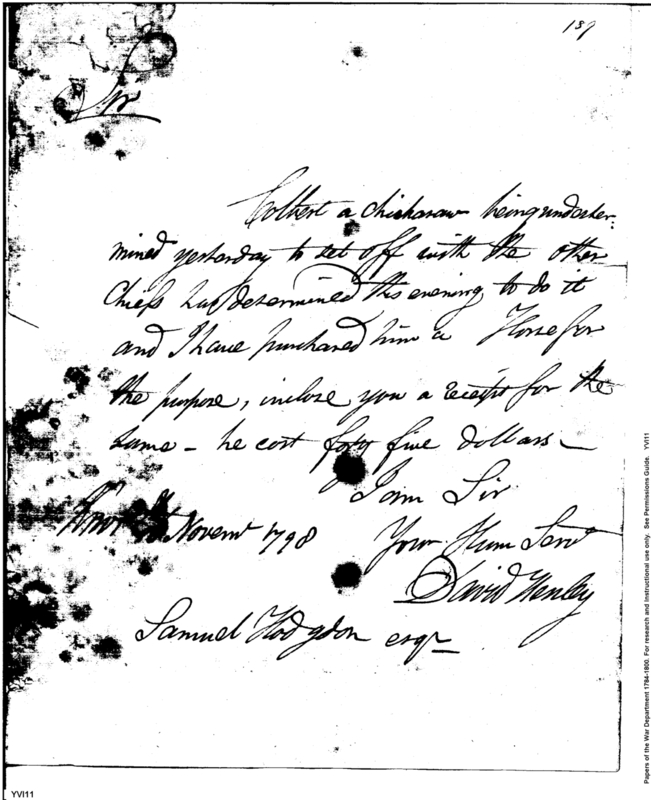 187
Sir
Colbert a chickasaw being undeter:
mined yesterday to set off with the other
Chiefs has determined this evening to do it
and I have purchased him a Horse for
the purpose, inclose you a receipt for the
same - he cost forty five dollars -
I am Sir
Your Hum Servt
David Henley
Novemr 1798
Samuel Hodgdon esqr
Papers of the War Department 1784-1800. For research and Instructional use only. See Permissions Guide. YVI11
YVI11